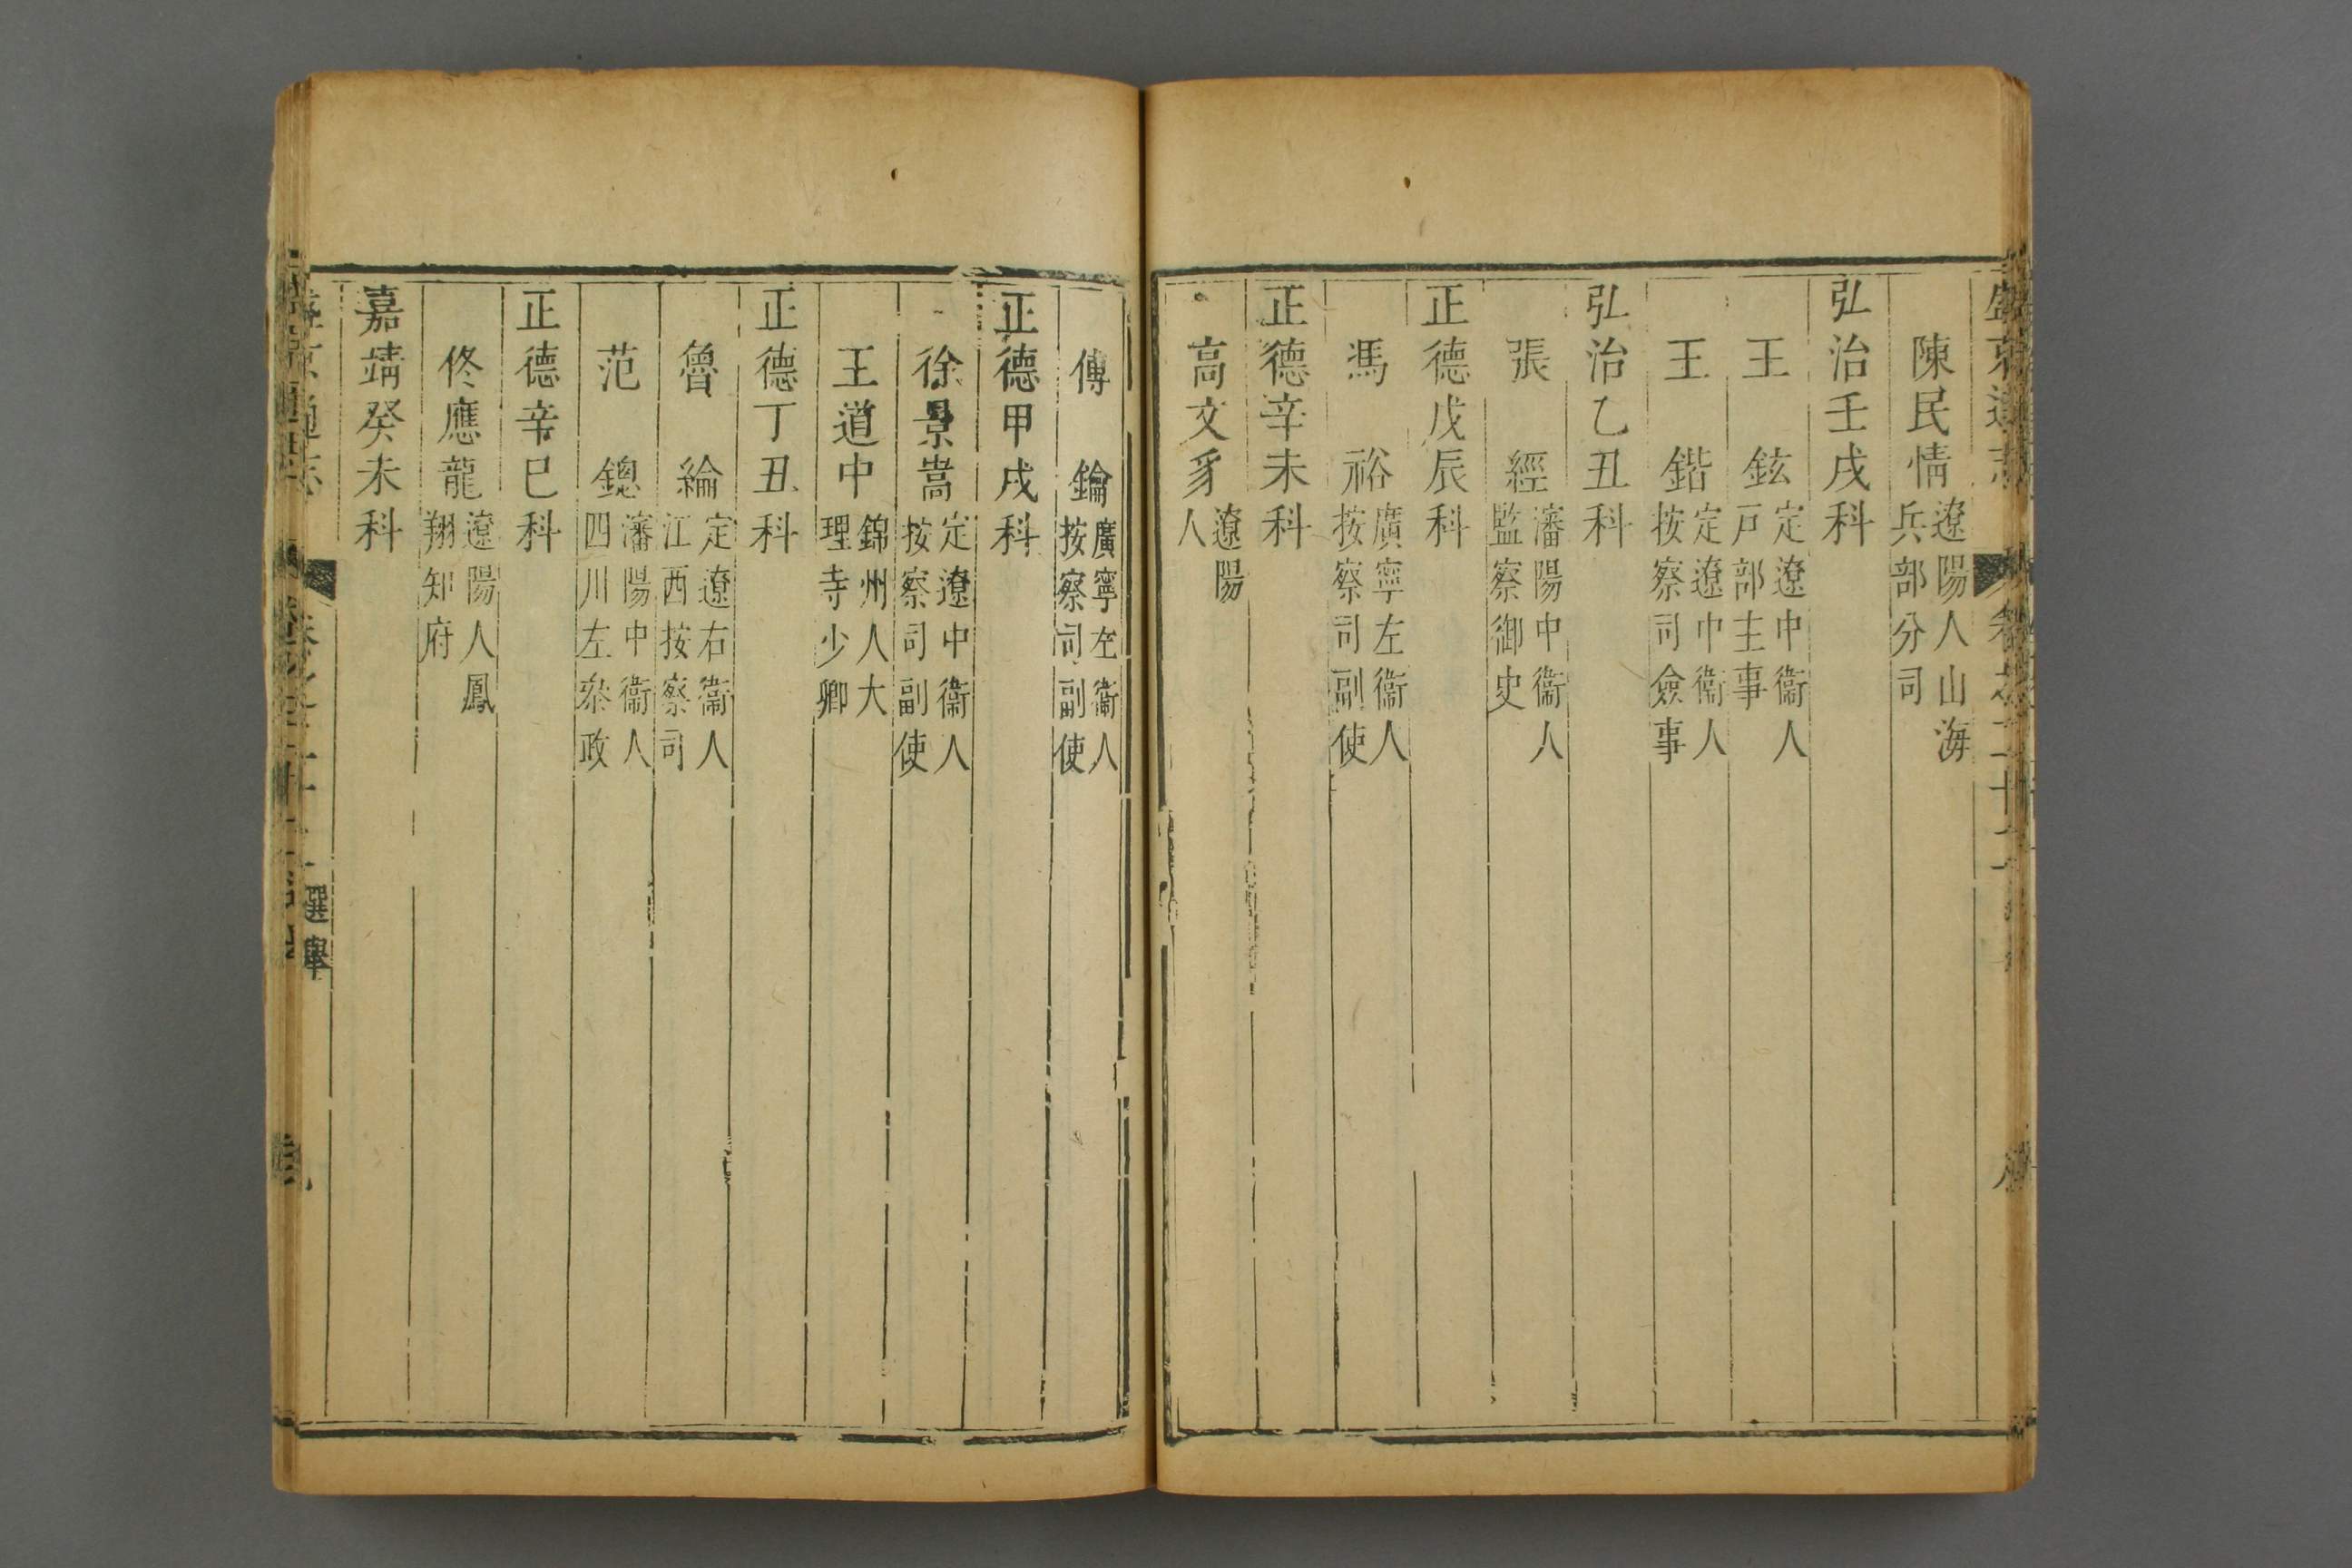 盛京通志 卷之二十二
陳民情遼陽人山海兵部分司
弘治壬戌科
王鉉定遼中衞人戸部主事
王鍇定遼中衞人按察司僉事
弘治乙丑科
張經瀋陽中衞人監察御史
正德戊辰科
馮裕廣寧左衞人按察司副使
正德辛未科
高文豸遼陽人
傅鑰廣寧左衞人按察司副使
正德甲戌科
徐景嵩定遼中衞人按察司副使
王道中錦州人大理寺少卿
正德丁丑科
魯綸定遼右衞人江西按察司
范鏓瀋陽中衞人四川左叅政
正德辛巳科
佟應龍遼陽人鳳翔知府
嘉靖癸未科
選舉